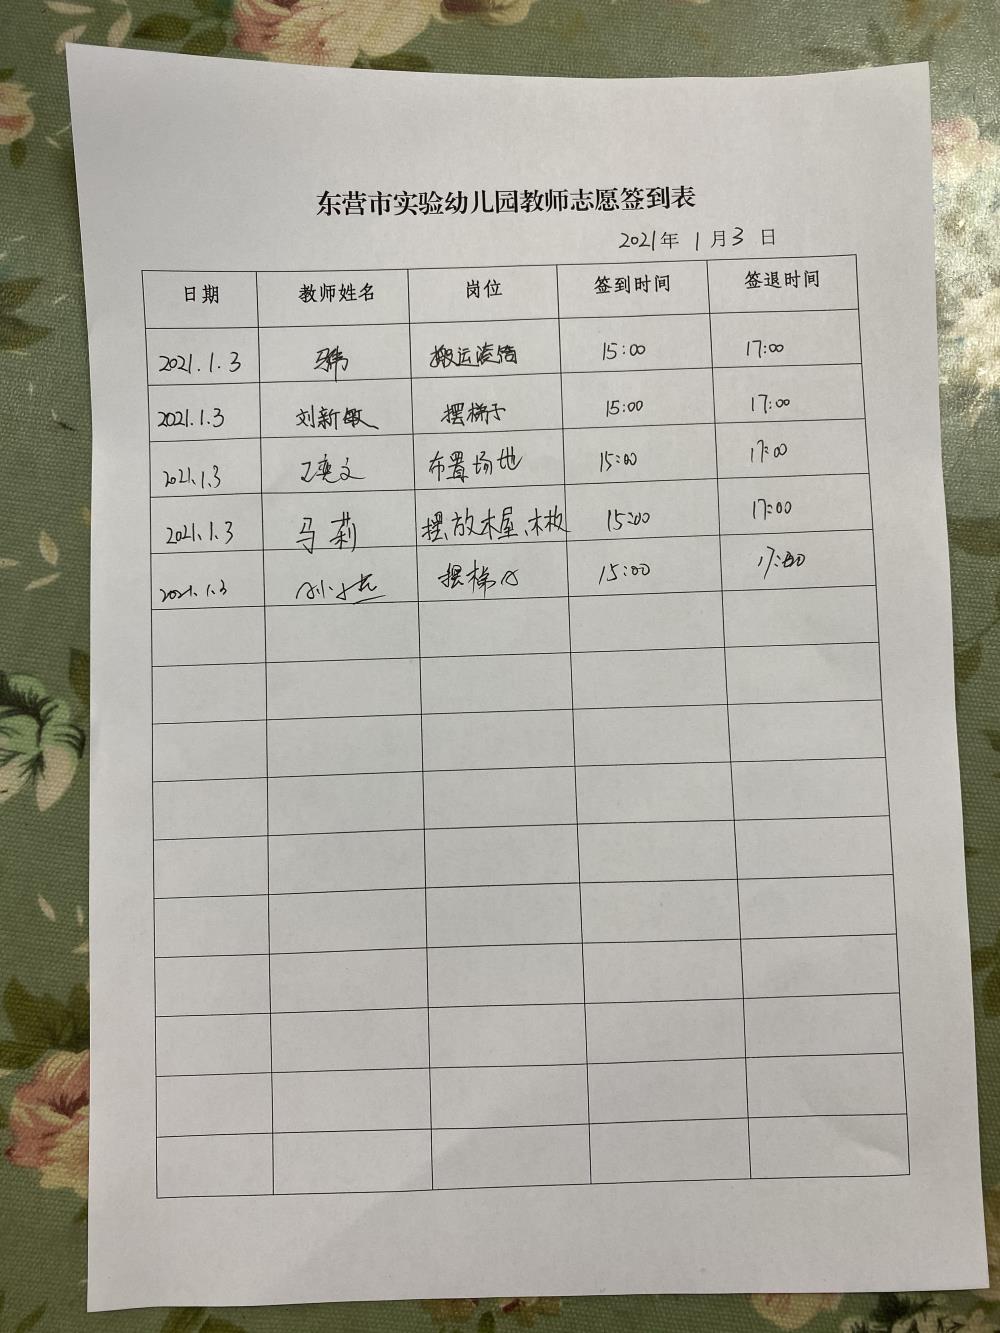 东营市实验幼儿园教师志愿签到表
2021年 1月3日
日期 教师姓名 岗位 签到时间 签退时间
2021.1.3 15:00 17:00
2021.1.3 刘新敏 摆梯子 15:00 17:00
2021.1.3 王奕文 布置场地 15:00 17:00
2021.1.3 马莉 摆放木屋、木板 15:00 17:00
2021.1.3 摆梯子 15:00 17:00